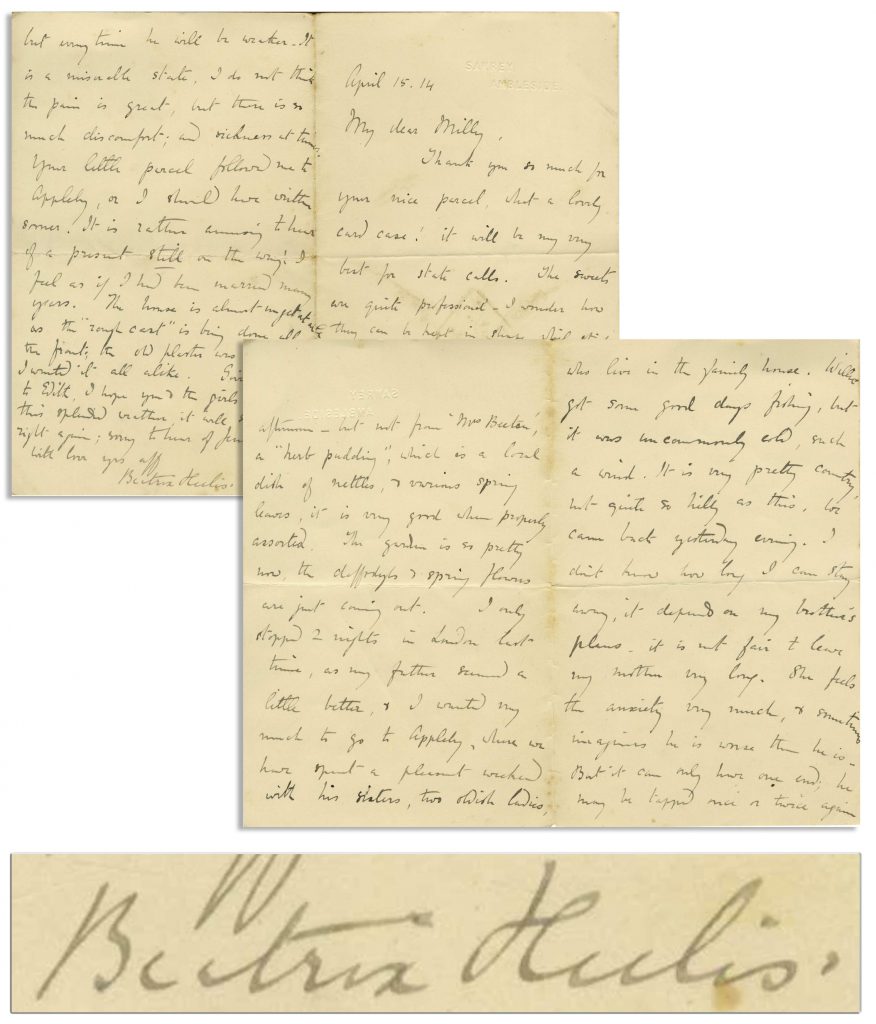 SAWREY
AMBLESIDE.
April 15. 14
My dear Milly,
Thank you so much for
your nice parcel, what a lovely
card case! it will be my very
best for state calls. The sweets
are quite professional - I wonder how
they can be kept in shape
SAWREY
AMBLESIDE
afternoon - but not from "Mrs Beeton",
a "herb pudding", which is a local
dish of nettles, & various spring
leaves, it is very good when properly
assorted. The garden is so pretty
now, the daffodyls & spring flowers
are just coming out. I only
stopped 2 nights in London last
time, as my father seemed a
little better, & I wanted very
much to go to Appleby, where we
have spent a pleasant weekend
with his sisters, two oldish ladies,
who live in the family house. Willie
got some good days fishing, but
it was uncommonly cold, such
a wind. It is very pretty country,
not quite so hilly as this. We
came back yesterday evening. I
don't know how long I can stay
away, it depends on my brother's
plans - it is not fair to leave
my mother very long. She feels
the anxiety very much, & sometimes
imagines he is worse than he is -
But it can only have one end; he
may be tapped once or twice again
but every time he will be weaker. It
is a miserable state, I do not think
the pain is great, but there is so
much discomfort; and sickness at times.
Your little parcel followed me to
Appleby, or I should have written
sooner. It is rather amusing to hear
of a present still on the way! I
feel as if I had been married many
years. The house is almost
as the "rough cast" is being done all
the front; the old plaster was
I wanted it all alike.
to Edith, I hope you & the girls
this splendid weather, it will
right again; sorry to hear of
with love yrs aff
Beatrix Heelis.
Beatrix Heelis.